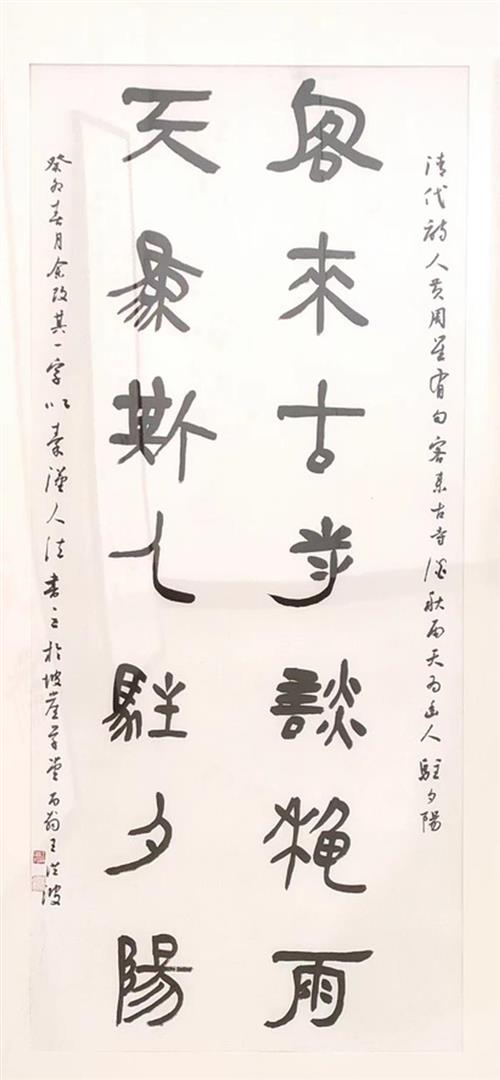 清代詩人黄周星有句客来古寺談秋雨天为幽人駐夕陽
客來古寺談穐雨
天為斯人駐夕陽
癸卯春月余改其一字以秦漢人法書之於坡崖草堂 王洪波